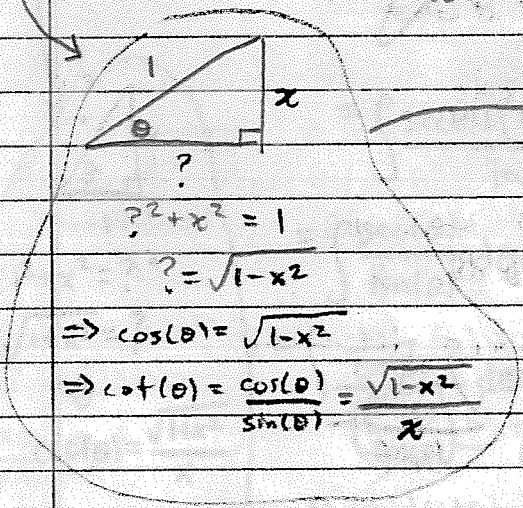 1
x
θ
?
?² + x² = 1
? = √(1-x²)
=> cos(θ) = √(1-x²)
=> cot(θ) = cos(θ)/sin(θ) = √(1-x²)/x